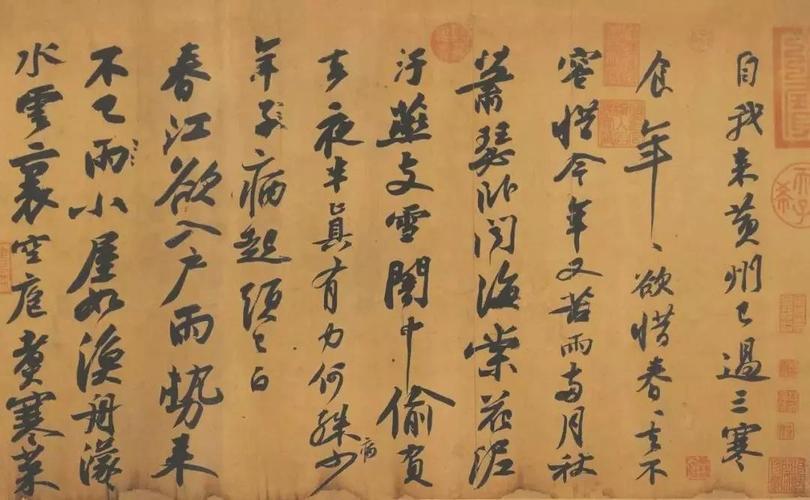 自我來黃州已過三寒
食年〻欲惜春〻去不
容惜今年又苦雨兩月秋
蕭瑟臥聞海棠花泥
汙燕支雪闇中偷負
去夜半真有力何殊少病
年子病起頭已白
春江欲入戶雨勢來
不已雨小屋如漁舟濛
水雲裏空庖煮寒菜